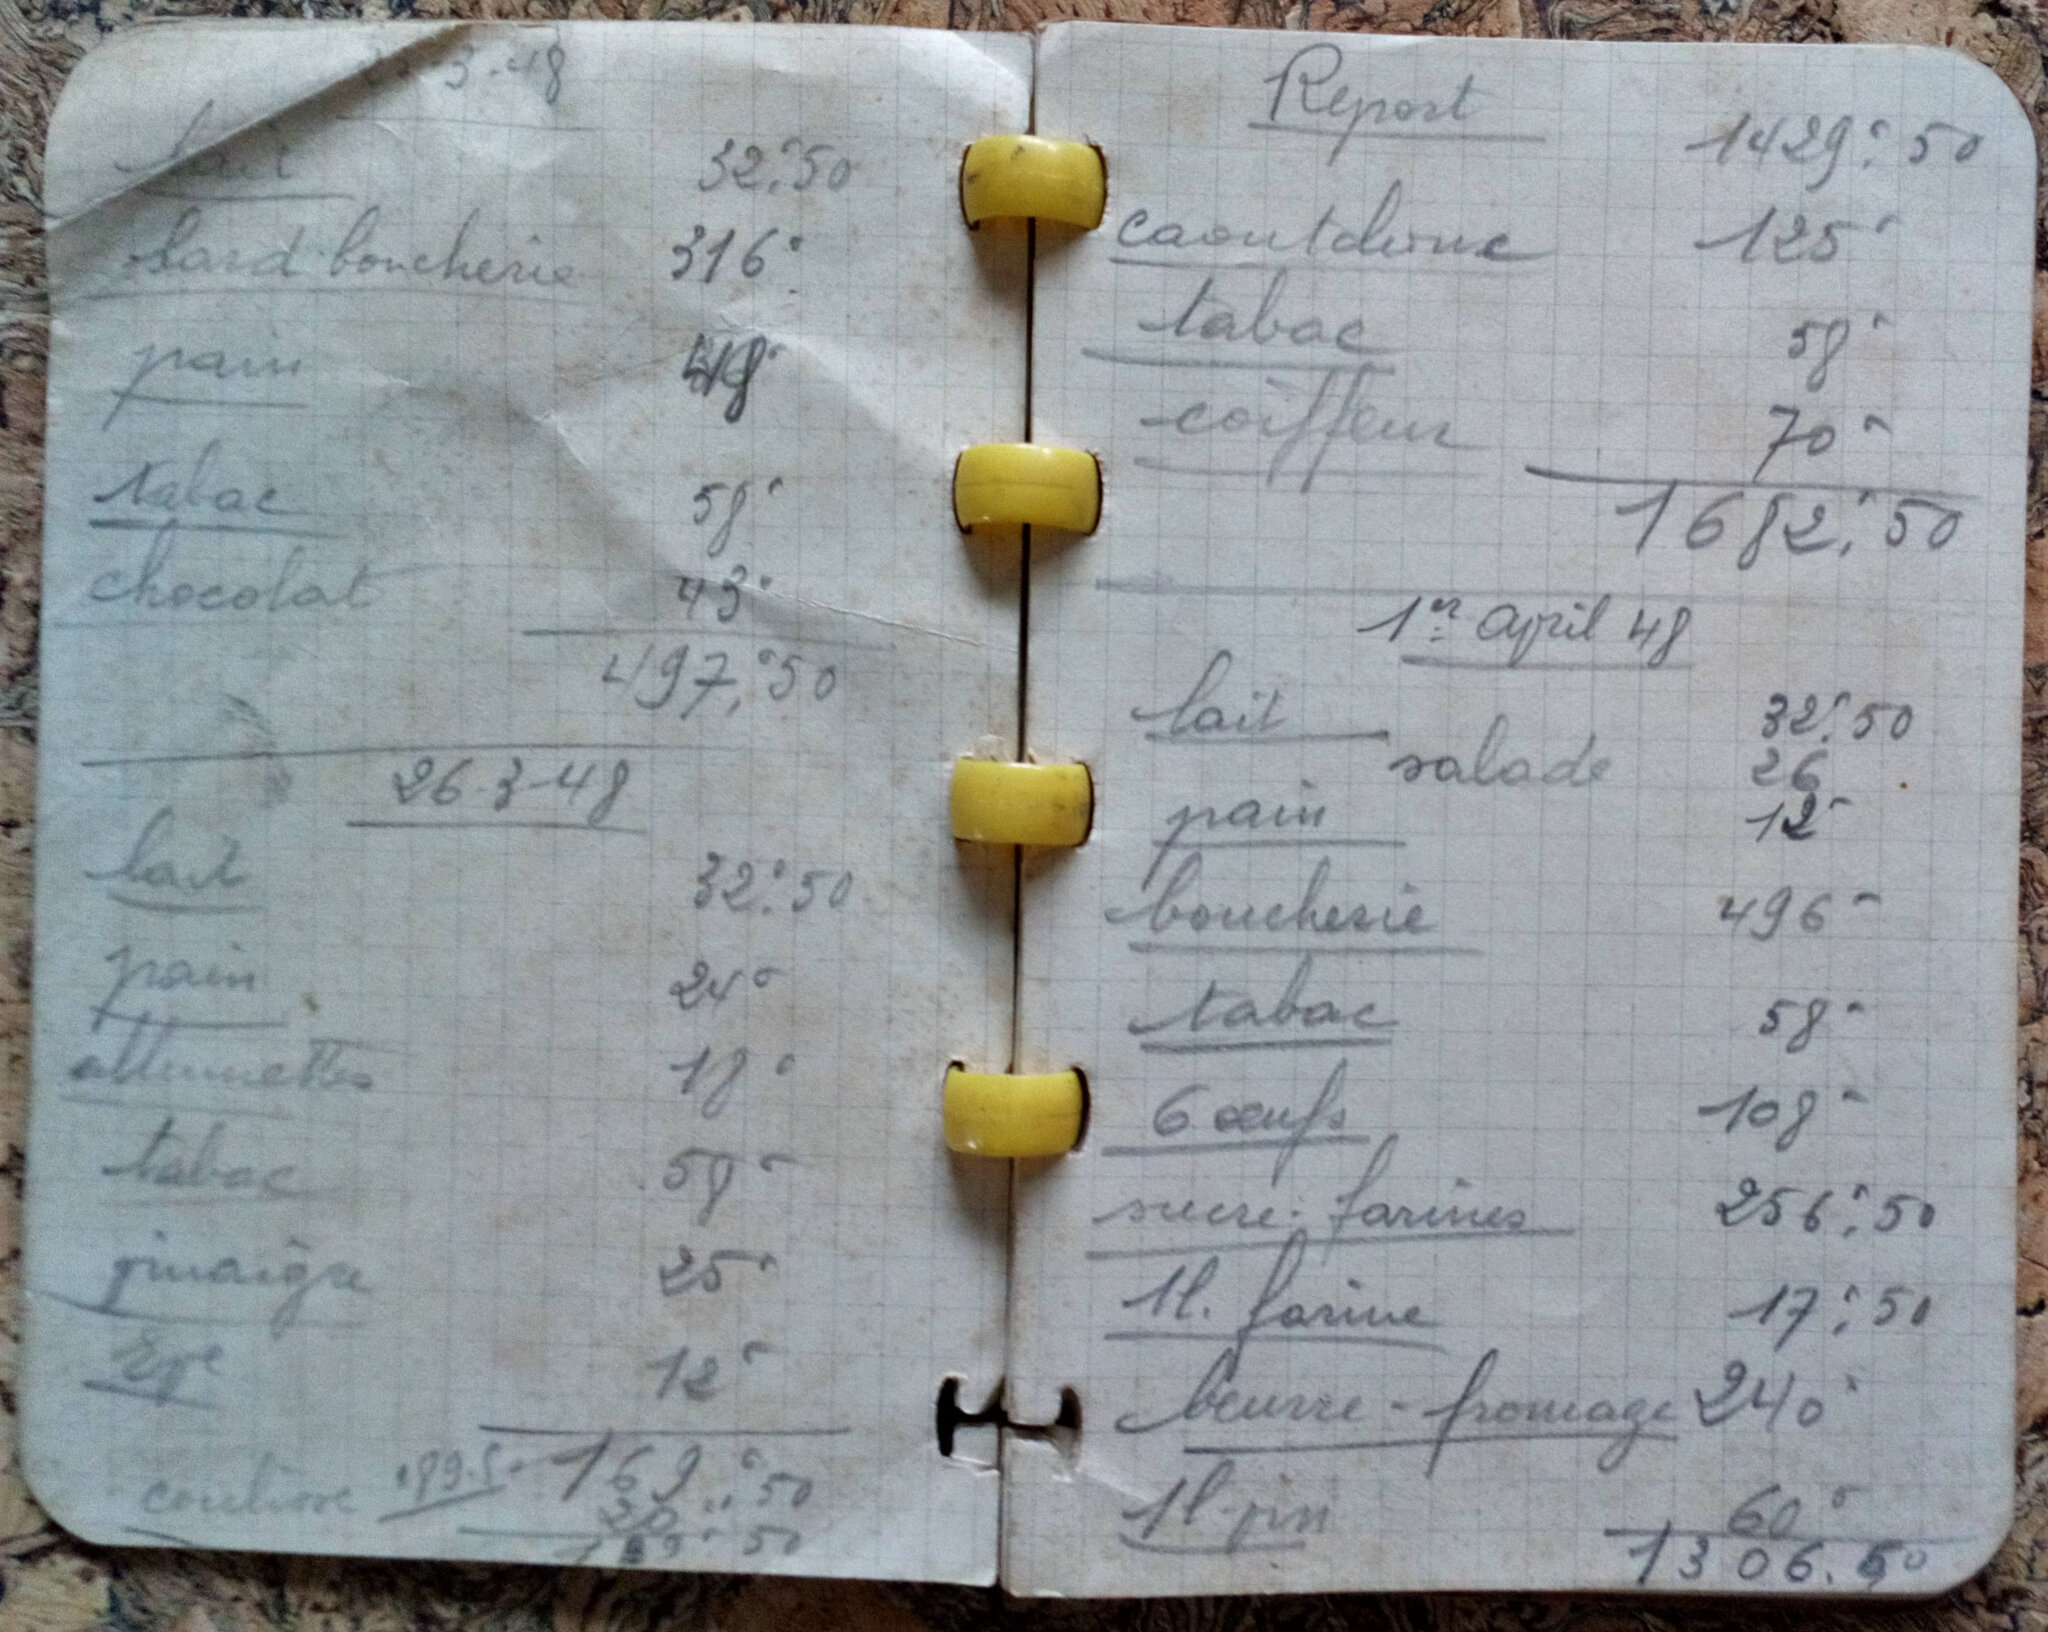 3-48
lait 32,50
Lard boucherie 316
pain 48
tabac 58
chocolat 43
497,50
26-3-48
lait 32,50
pain 24
allumettes 18
tabac 58
vinaigre 25
12
169,50
189,50
Report 1429,50
caoutchouc 125
tabac 58
coiffeur 70
1682,50
1er April 48
lait 32,50
salade 26
pain 12
boucherie 496
tabac 58
6 œufs 108
sucre. farines 256,50
1l. farine 17,50
beurre - fromage 240
1l. vin 60
1306.50